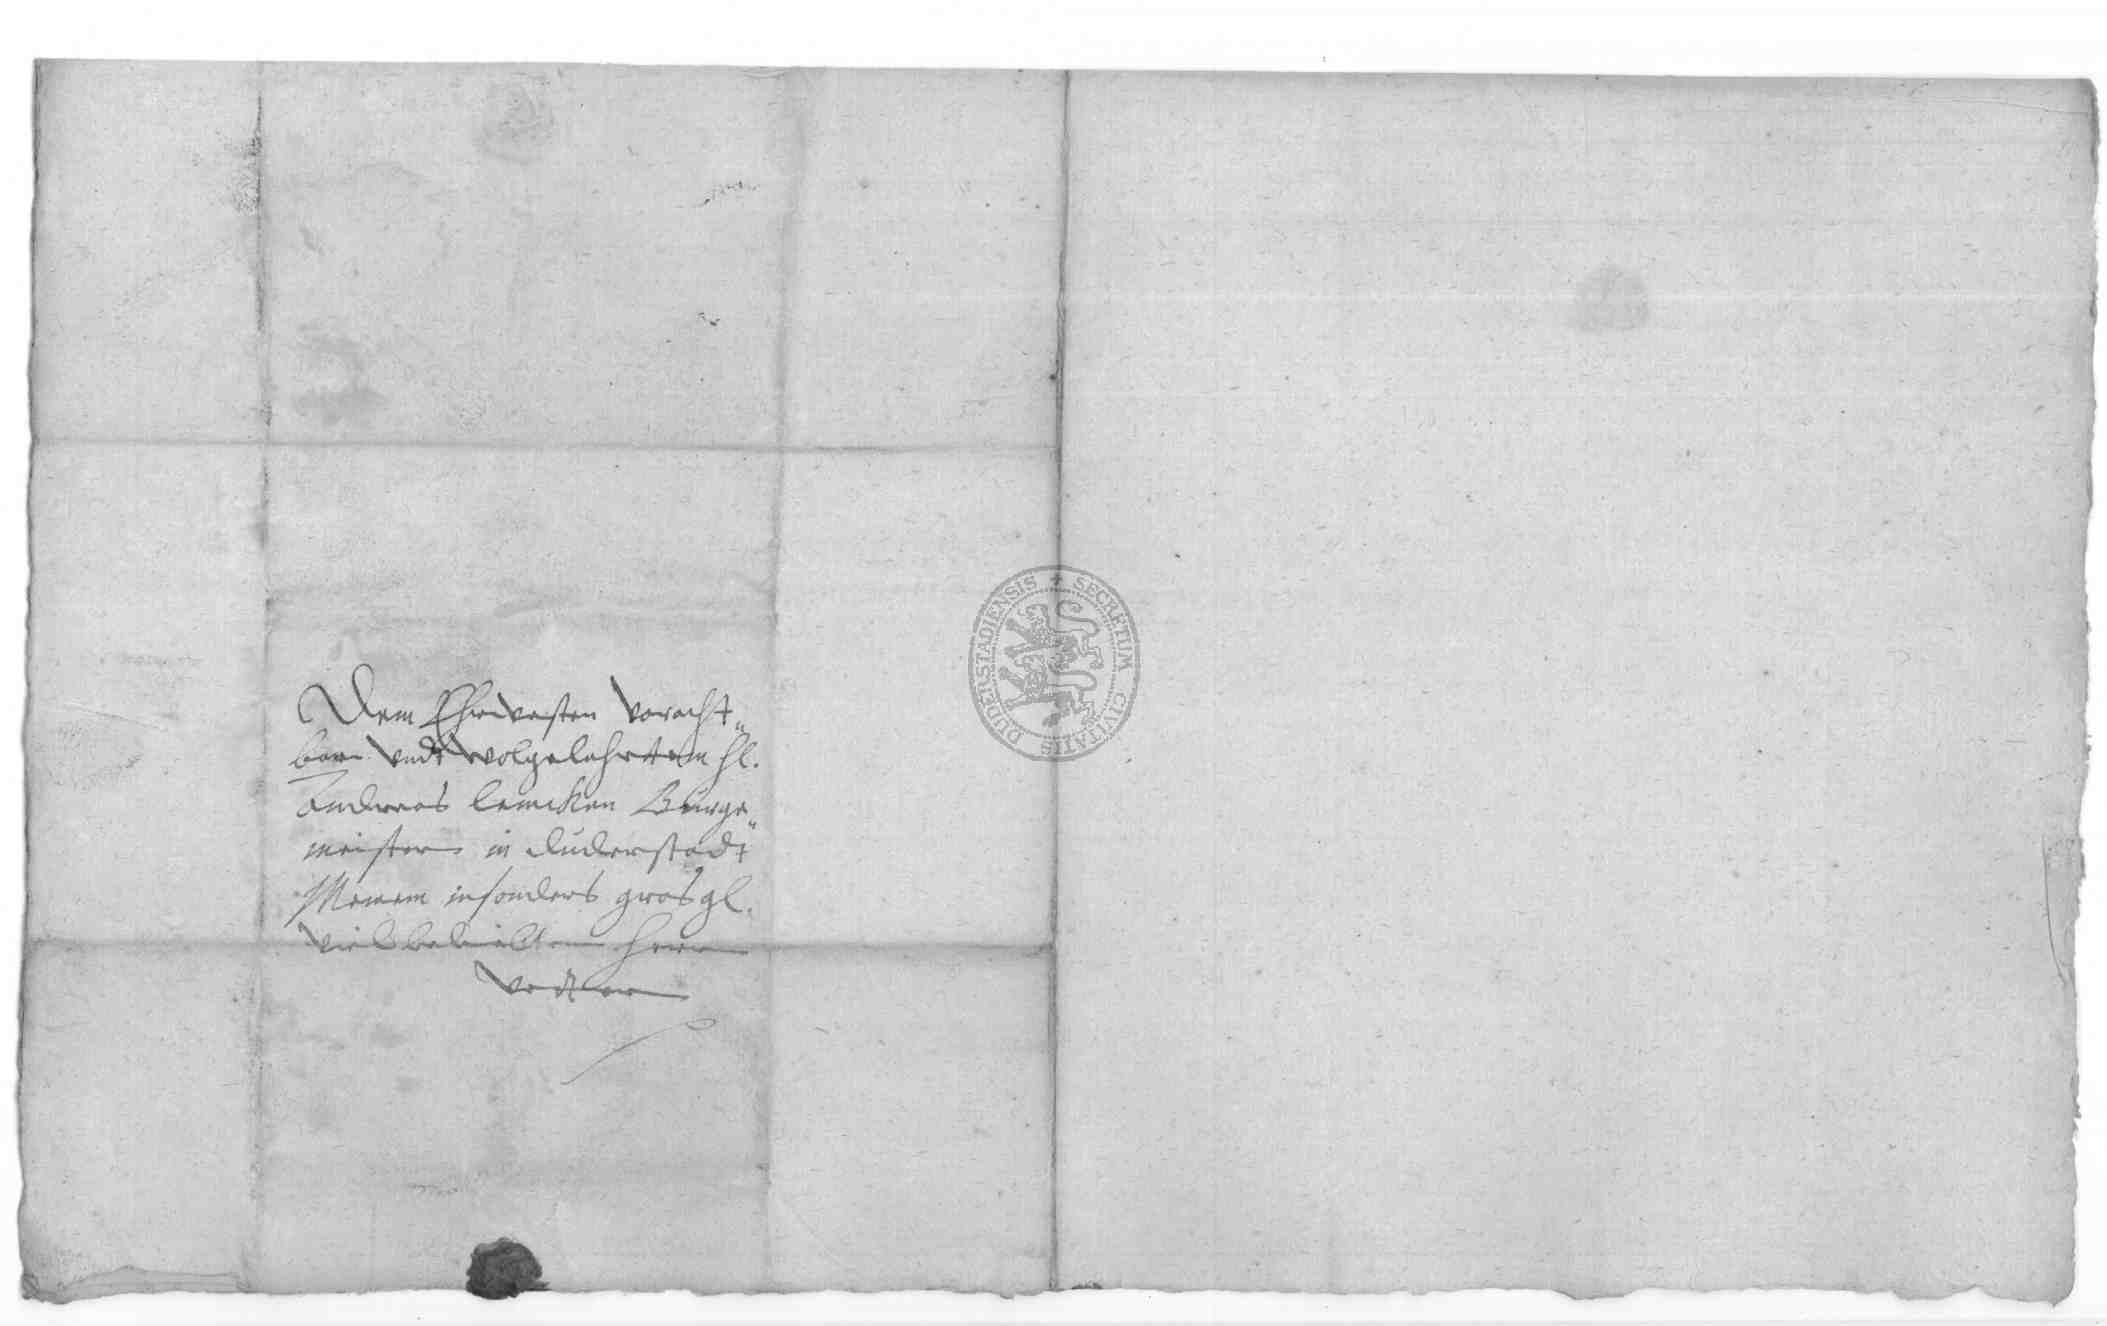 Dem Ehrvesten voracht„
barn undt wolgelahrttem Hl.
Andreas Lemcken Burge„
meistern in Duderstadt
Meinem insonders grosgl.
viel beliebtem Herrn
Vettern
SECRETUM CIVITATIS DUDERSTADIENSIS